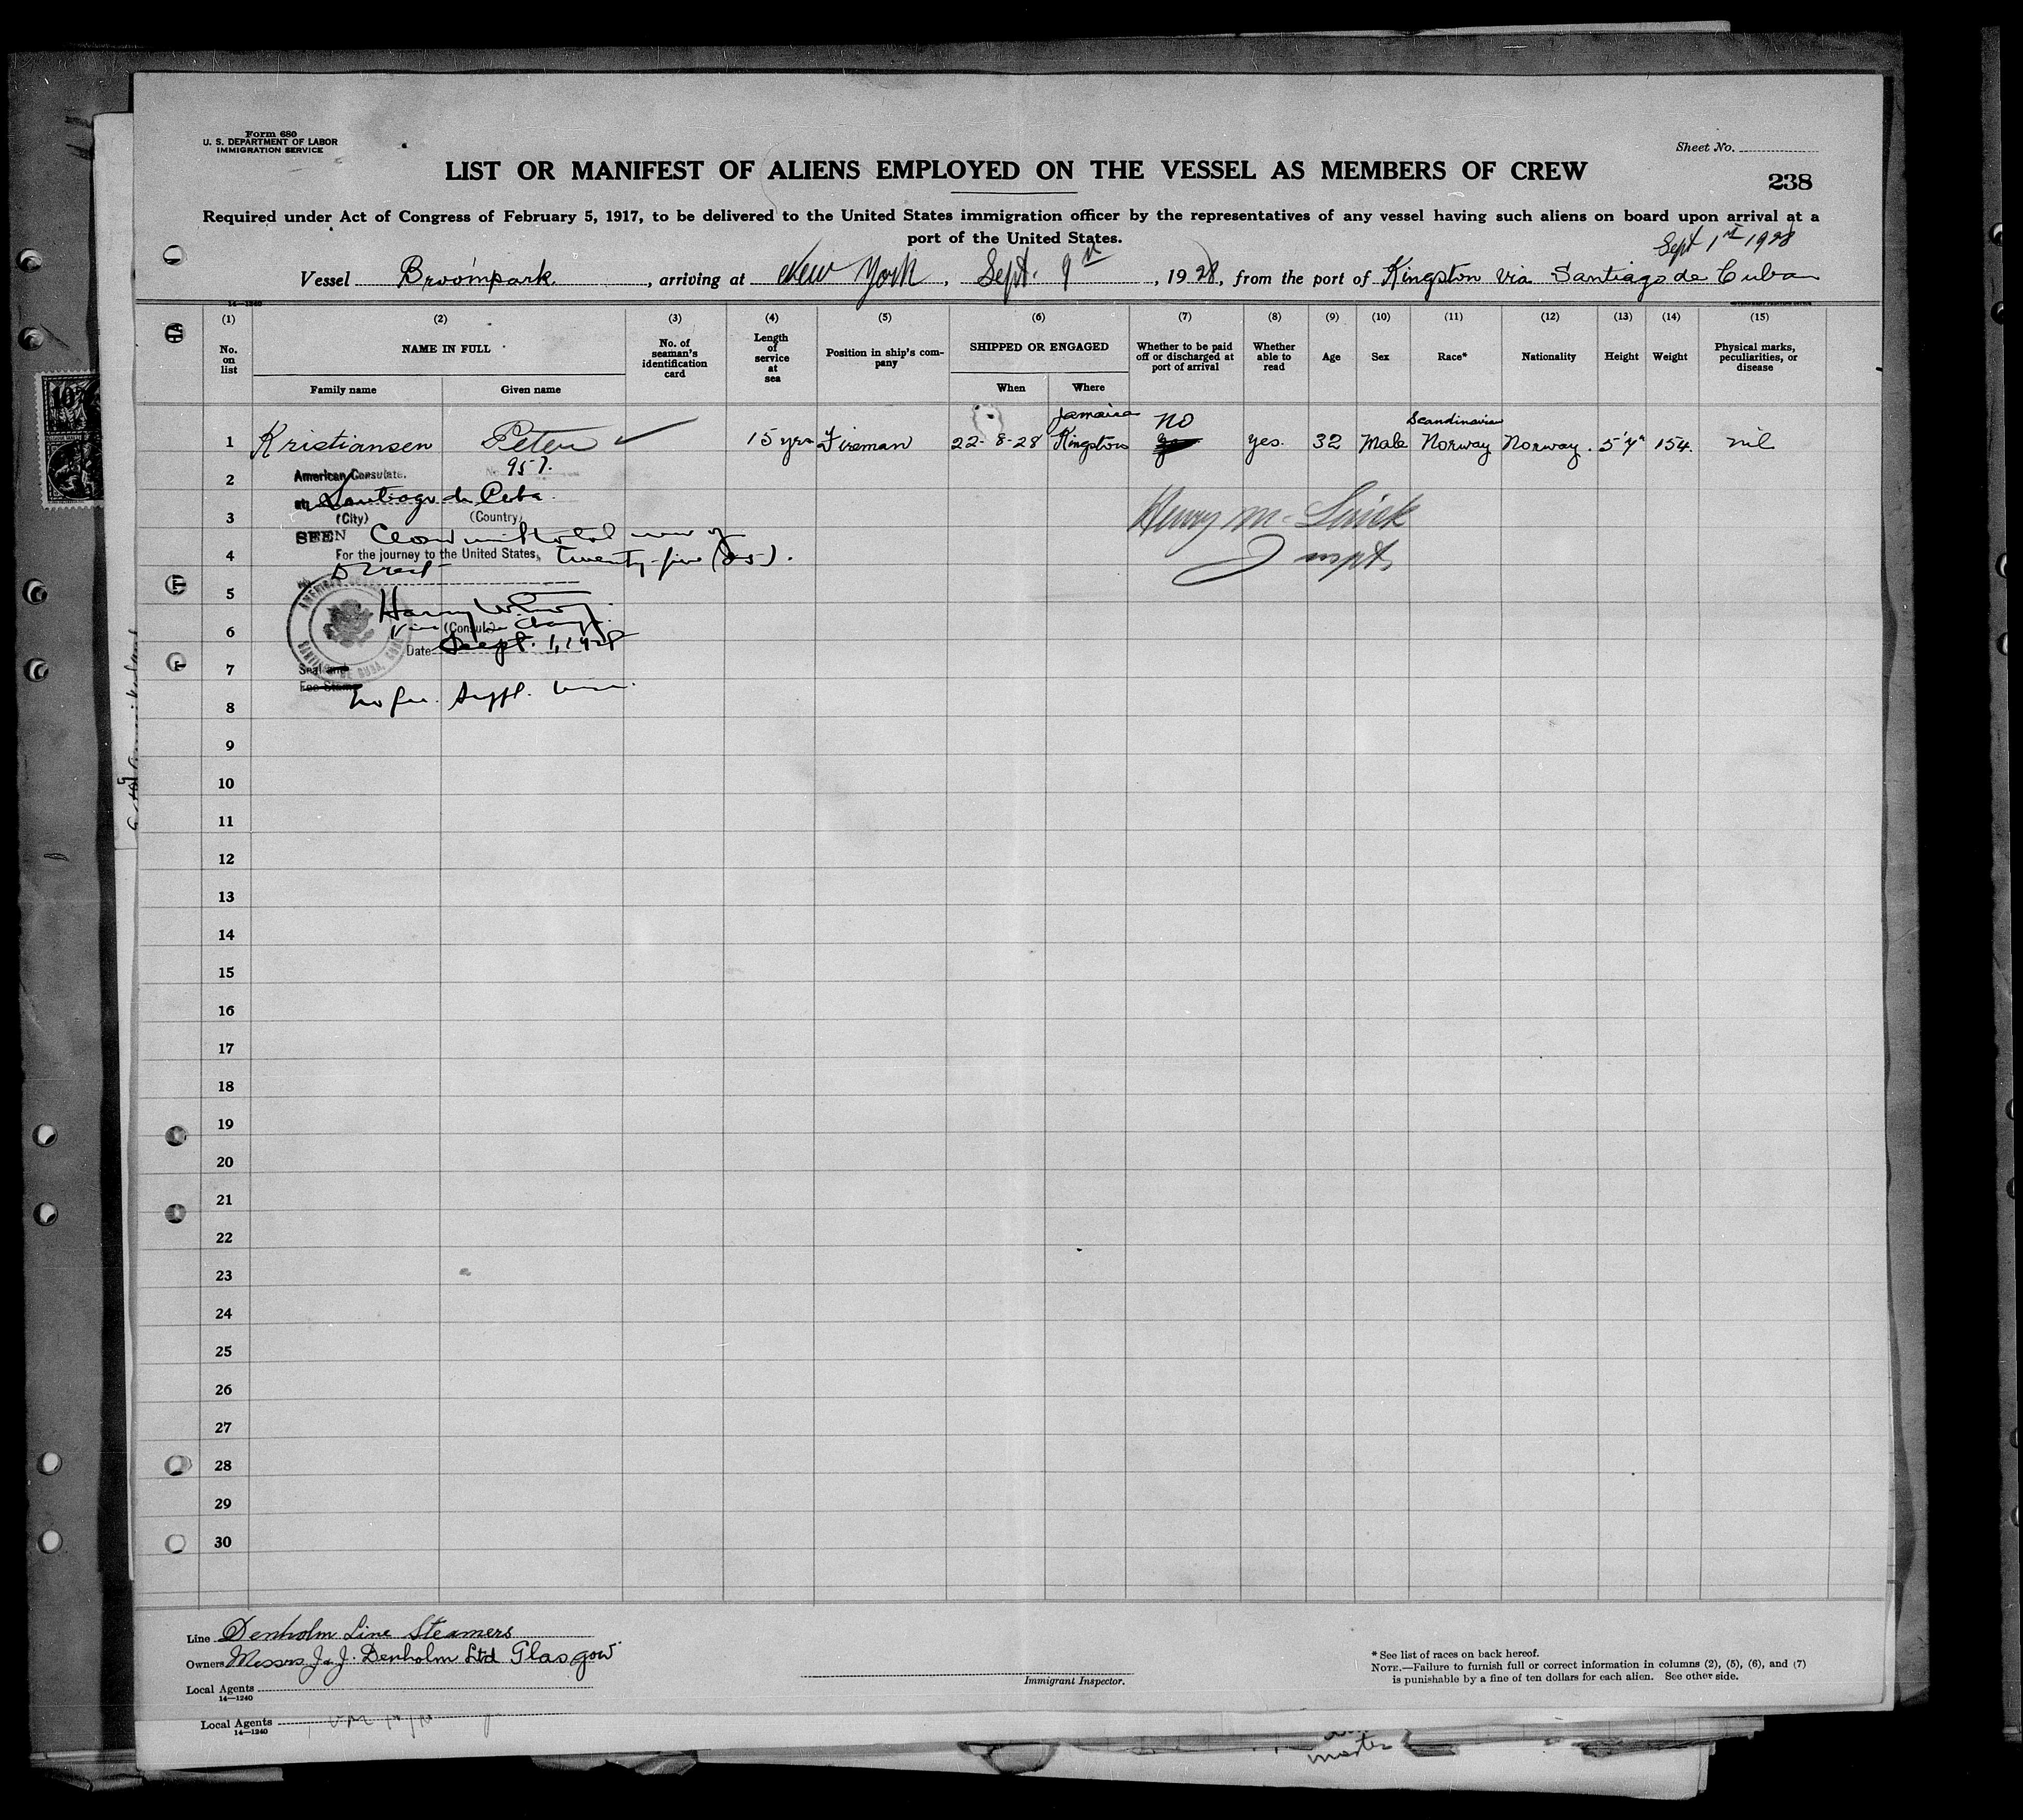 Form 680
U. S. DEPARTMENT OF LABOR
IMMIGRATION SERVICE
Sheet No.
LIST OR MANIFEST OF ALIENS EMPLOYED ON THE VESSEL AS MEMBERS OF CREW
238
Required under Act of Congress of February 5, 1917, to be delivered to the United States immigration officer by the representatives of any vessel having such aliens on board upon arrival at a
port of the United States.
Sept 1st 1928
Vessel Broompark, arriving at New York, Sept. 9th, 1928, from the port of Kingston via Santiago de Cuba
14-1240
(1) (2) (3) (4) (5) (6) (7) (8) (9) (10) (11) (12) (13) (14) (15)
No. on list
NAME IN FULL
Family name
Given name
No. of seaman's identification card
Length of service at sea
Position in ship's company
SHIPPED OR ENGAGED
When
Where
Whether to be paid off or discharged at port of arrival
Whether able to read
Age
Sex
Race*
Nationality
Height
Weight
Physical marks, peculiarities, or disease
Jamaica no Scandinavian
1 Kristiansen Peter 15 yrs Fireman 22-8-28 Kingston yes. 32 Male Norway Norway. 5'7" 154. nil
957.
2 American Consulate.
at Santiago de Cuba.
3 (City) (Country)
SEEN
4 For the journey to the United States, twenty-five (25).
Direct
5
6 (Consul)
Date Sept. 1, 1928
7 Seal and
Fee Stamp
No fee. Suppl. visa.
8
9
10
11
12
13
14
15
16
17
18
19
20
21
22
23
24
25
26
27
28
29
30
Line Denholm Line Steamers
Owners Messrs J & J. Denholm Ltd Glasgow
Local Agents
14-1240
Immigrant Inspector.
* See list of races on back hereof.
NOTE.—Failure to furnish full or correct information in columns (2), (5), (6), and (7)
is punishable by a fine of ten dollars for each alien. See other side.
Local Agents
14-1240
master